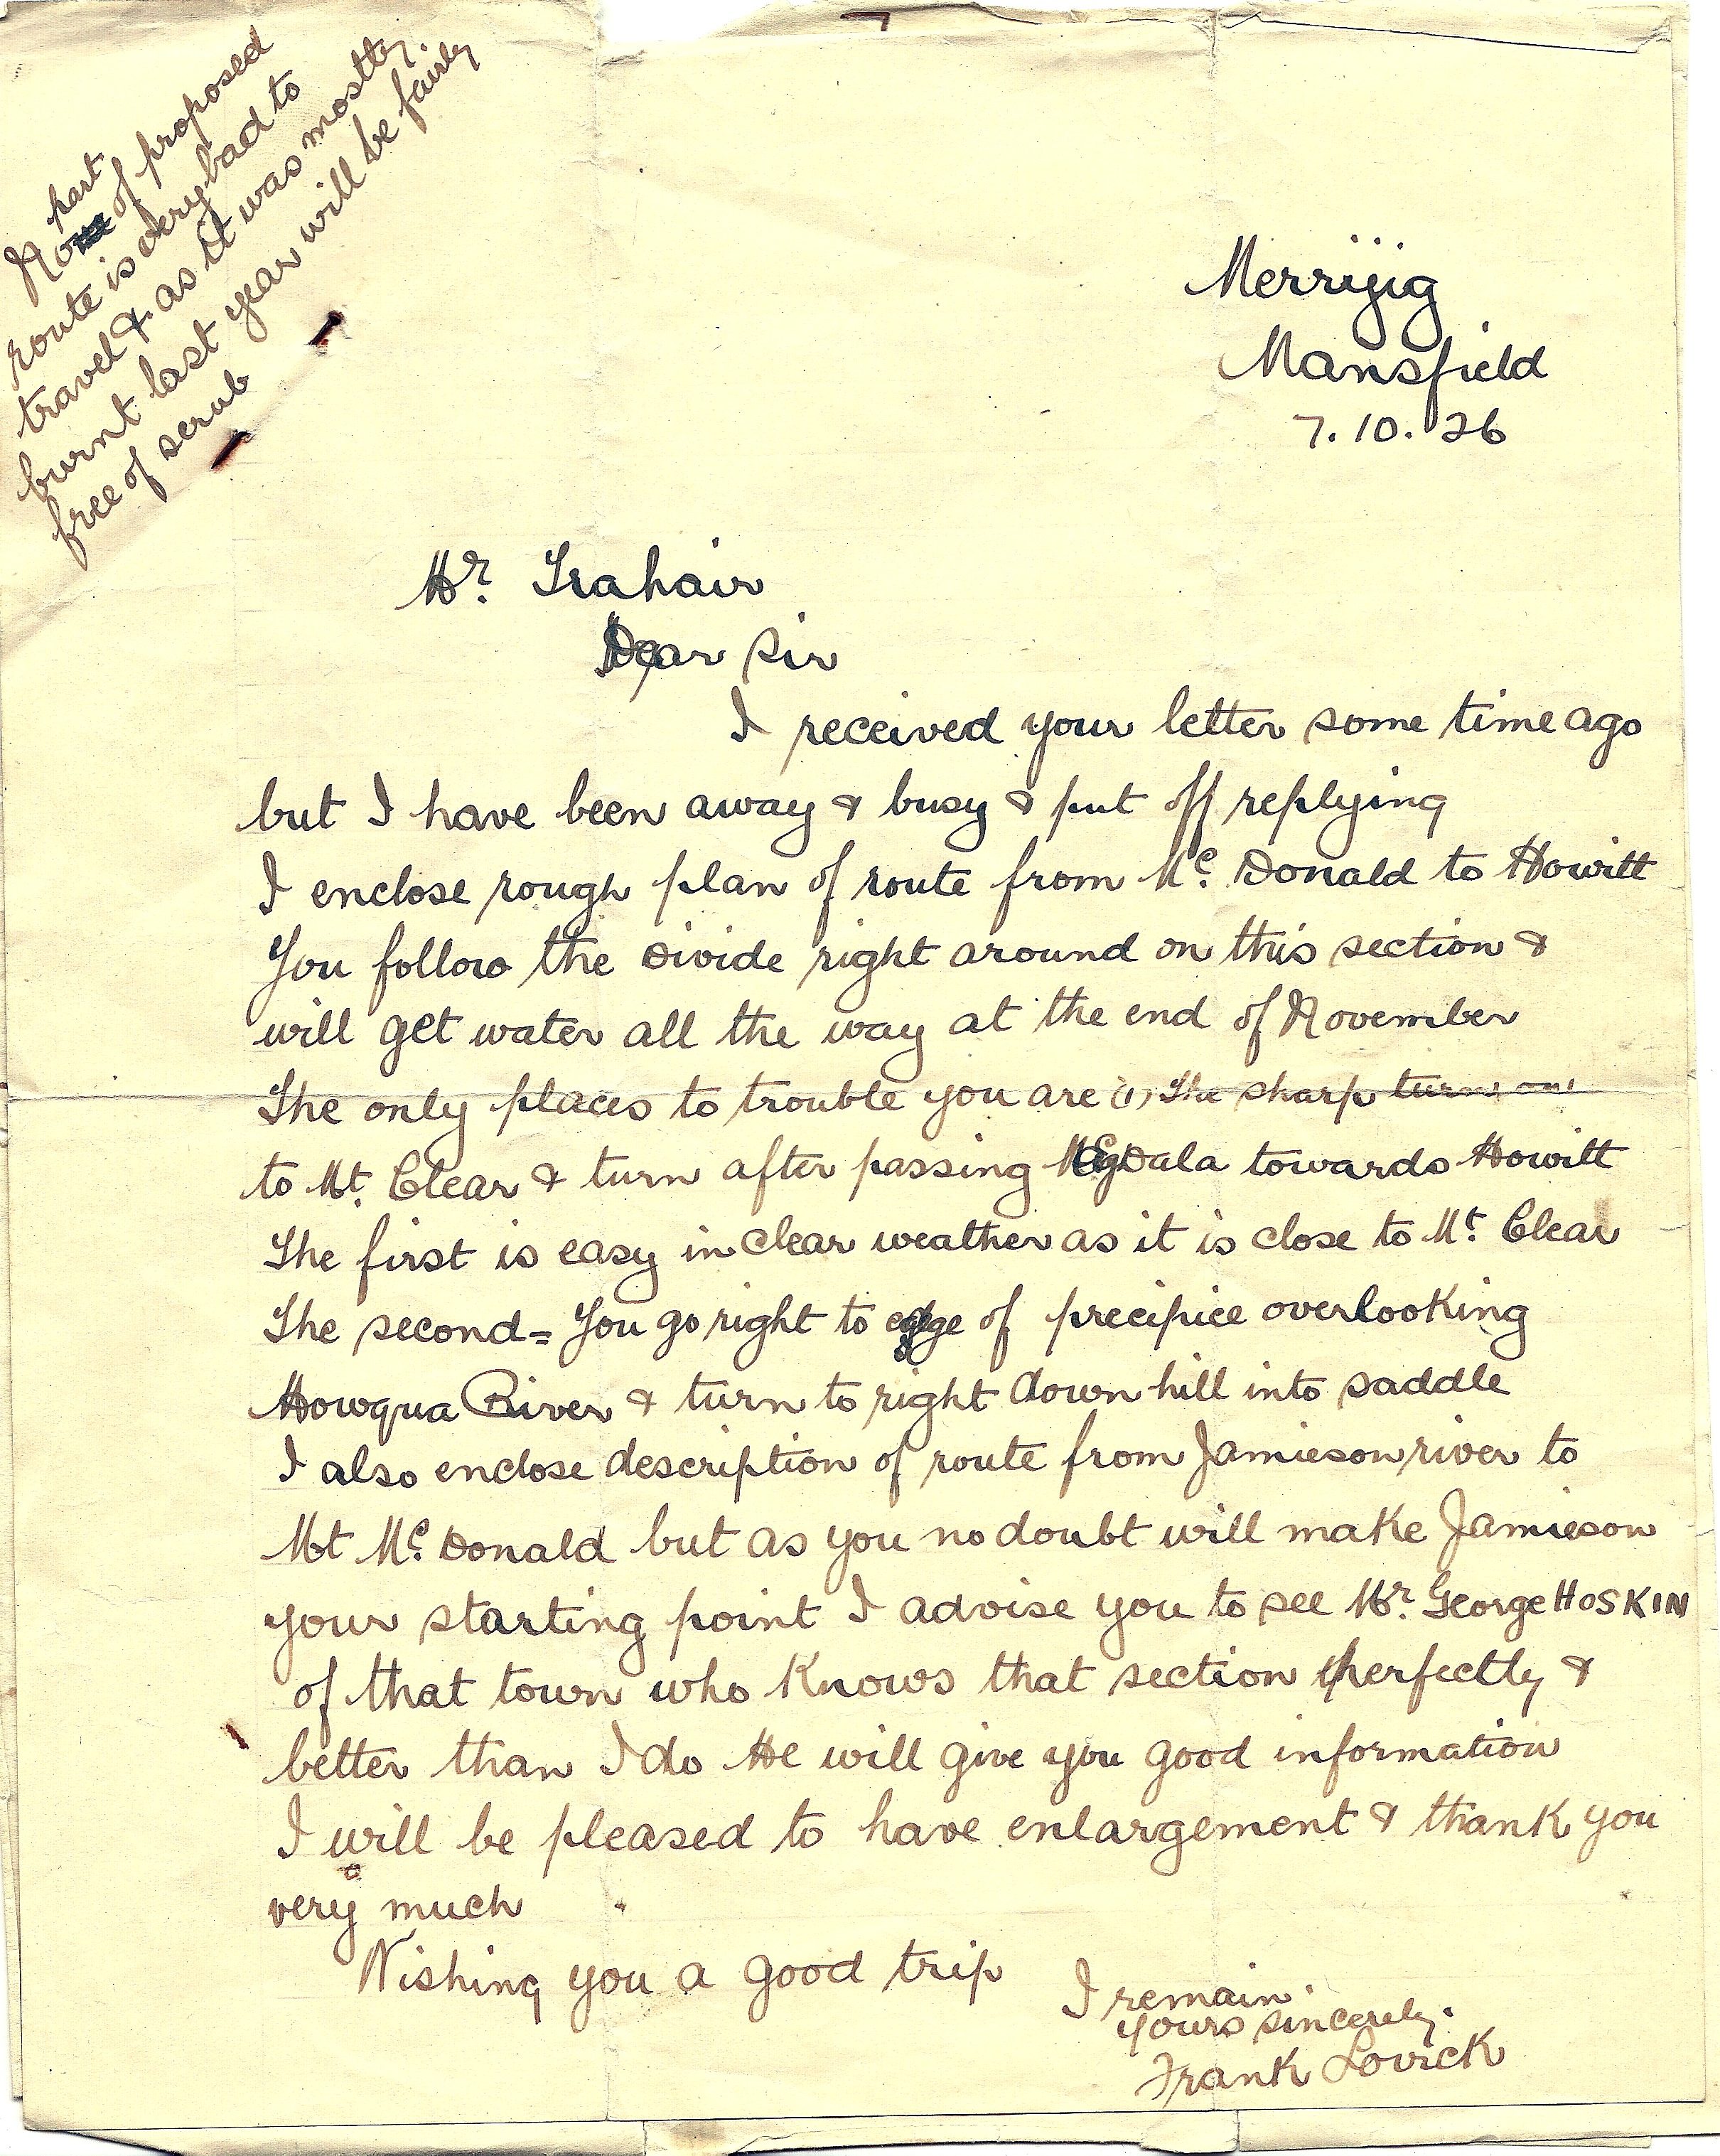 No part of proposed
route is very bad to
travel & as it was mostly
burnt last year will be fairly
free of scrub
Merrijig
Mansfield
7.10.26
Mr. Trahair
Dear Sir
I received your letter some time ago
but I have been away & busy & put off replying
I enclose rough plan of route from Mc. Donald to Howitt
You follow the Divide right around on this section &
will get water all the way at the end of November
The only places to trouble you are (1) The sharp turn on
to Mt. Clear & turn after passing Magdala towards Howitt
The first is easy in clear weather as it is close to Mt. Clear
The second = You go right to edge of precipice overlooking
Howqua River & turn to right down hill into saddle
I also enclose description of route from Jamieson river to
Mt Mc. Donald but as you no doubt will make Jamieson
your starting point I advise you to see Mr. George HOSKIN
of that town who knows that section perfectly &
better than I do He will give you good information
I will be pleased to have enlargement & thank you
very much
Wishing you a good trip
I remain.
yours sincerely.
Frank Lovick